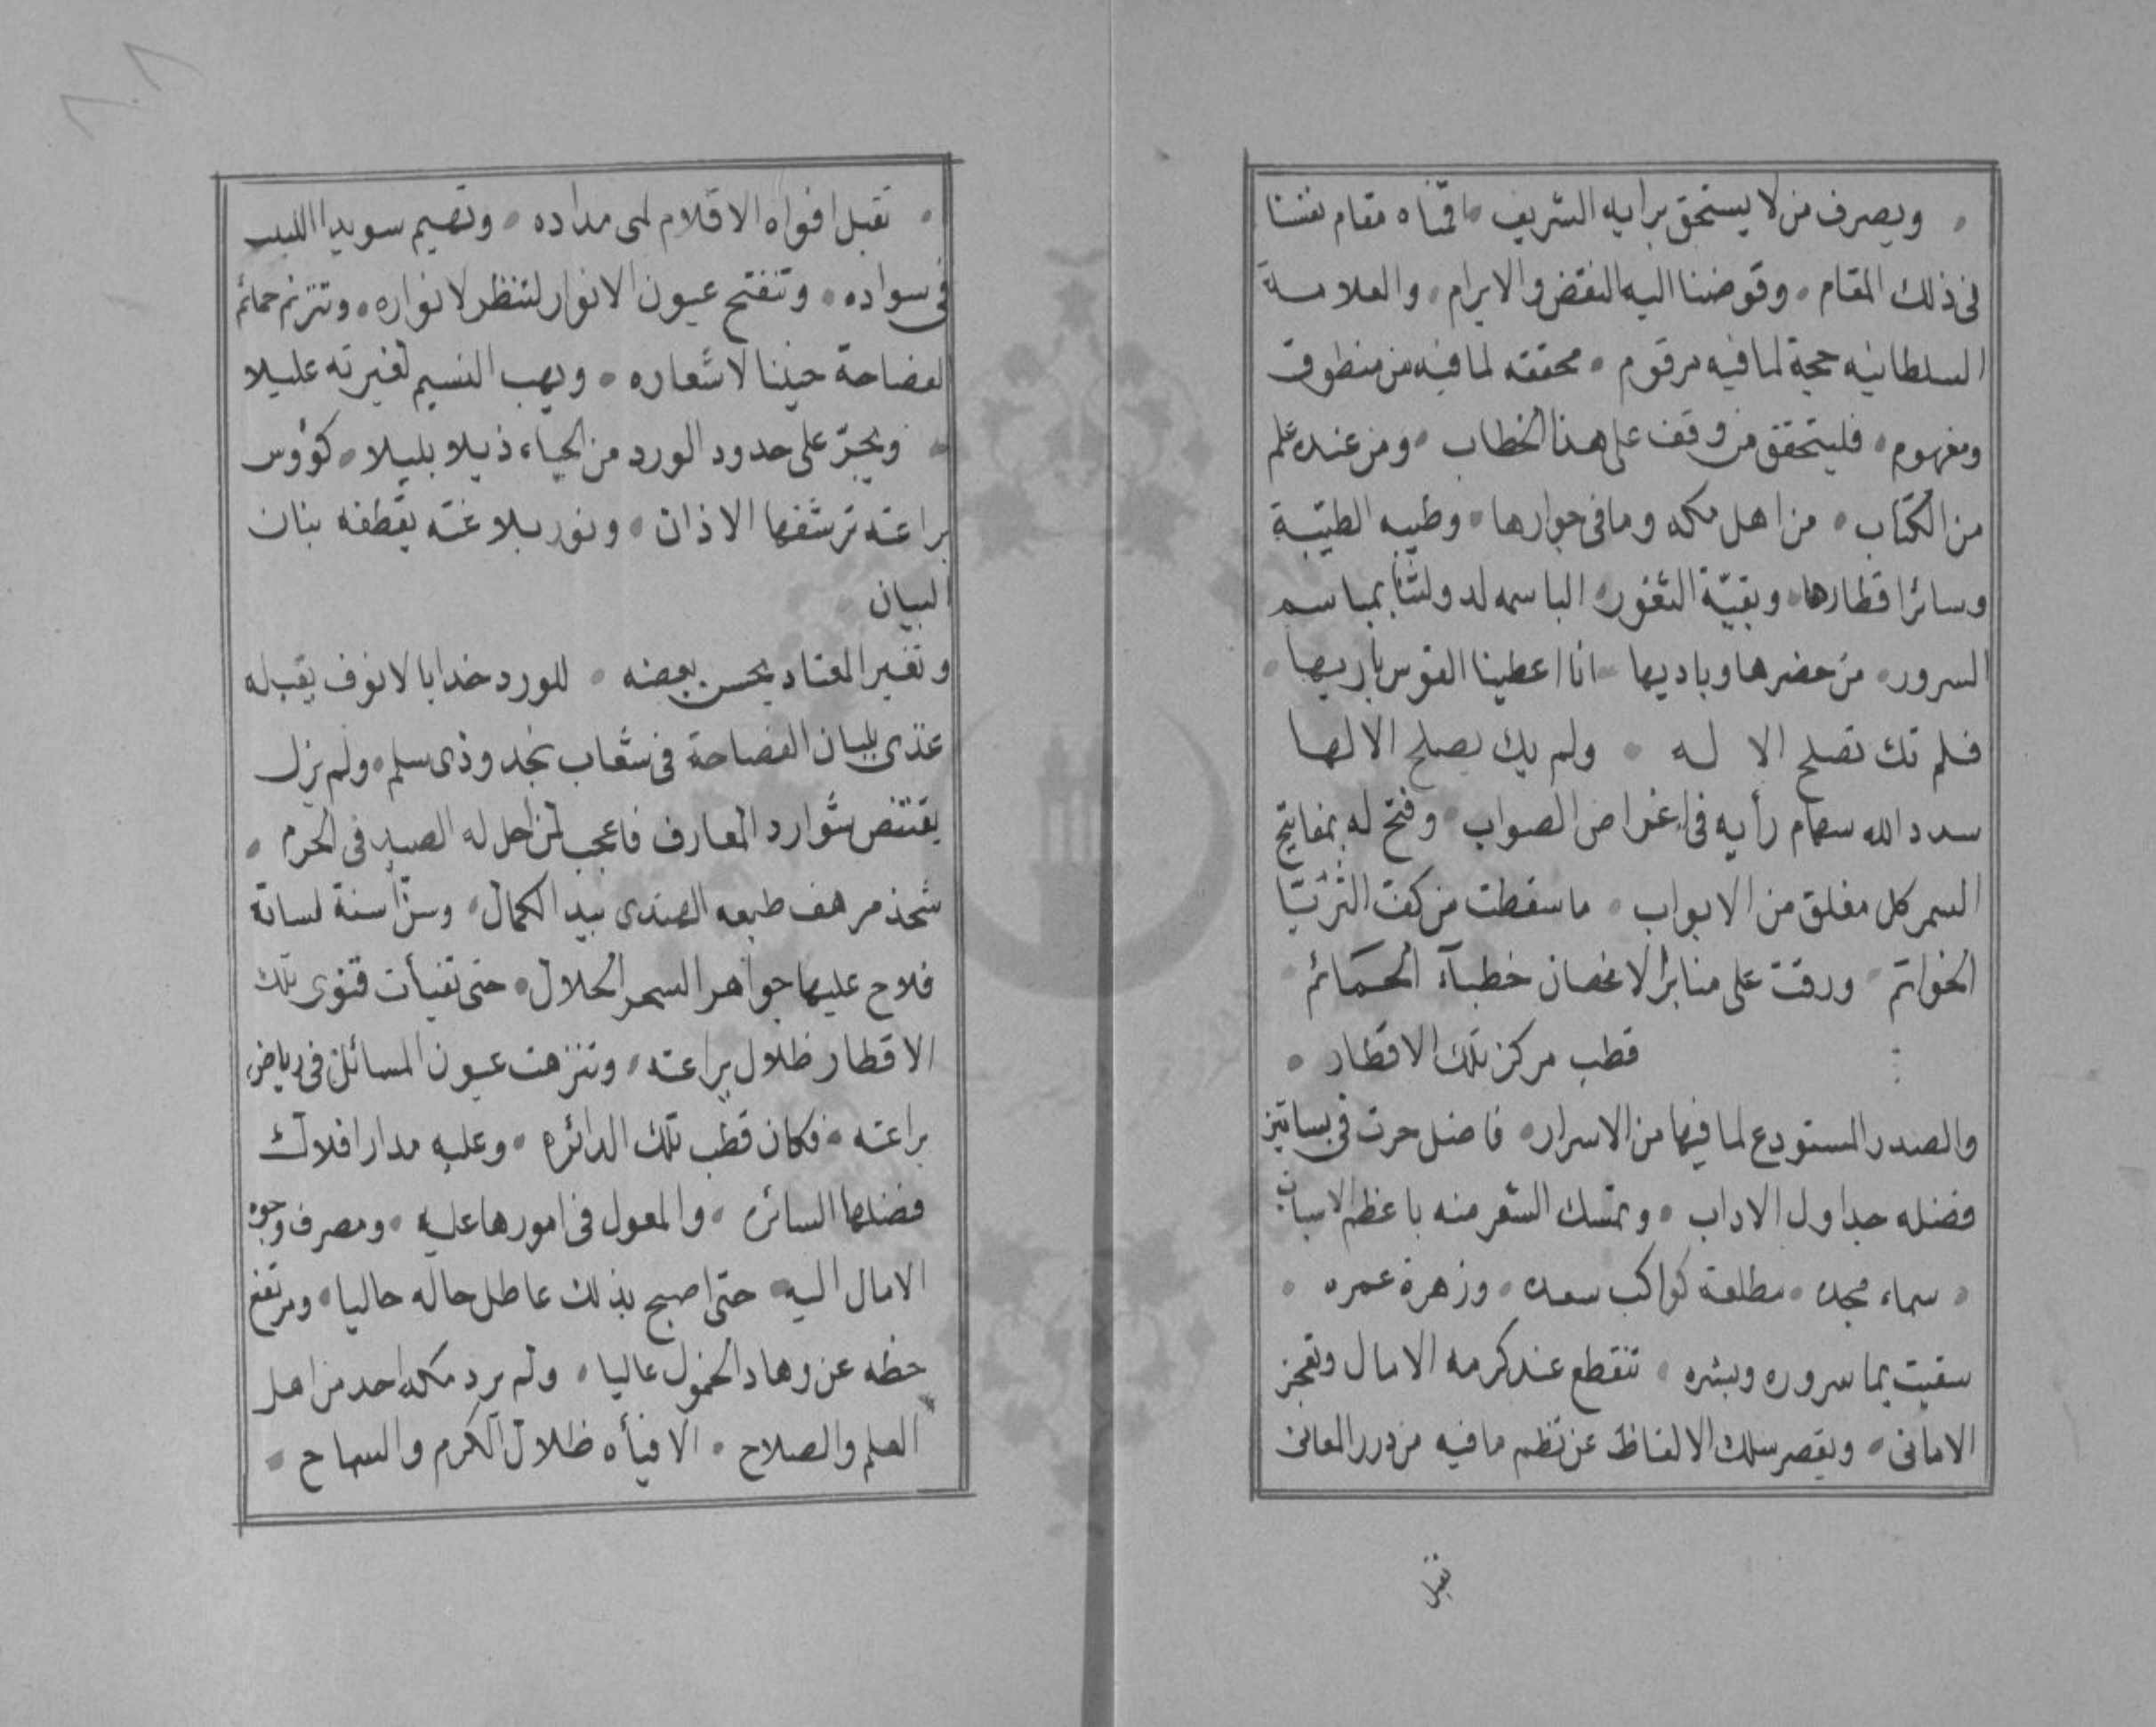 ويصرف من لا يستحق برايه الشريف • اقمناه مقام نفسنا
فى ذلك المقام • وفوضنا اليه النقض والابرام • والعلامة
السلطانيه حجة لما فيه مرقوم • محققه لما فيه من منطوق
ومفهوم • فليتحقق من وقف على هذا الخطاب • ومن عنده علم
من الكتاب • من اهل مكه وما فى جوارها • وطيبه الطيّبة
وسائر اقطارها • وبقيّة الثغور • الباسمه لدولتنا بمباسم
السرور • من حضرها وباديها • انا اعطينا القوس باريها •
فلم تك تصلح الا له • ولم يك يصلح الا لها
سدد الله سهام رأيه فى اغراض الصواب • وفتح له بمفاتيح
السمر كل مغلق من الابواب • ما سقطت من كف الثريّا
الخواتم • ورقت على منابر الاغصان خطبآء الحمائم •
قطب مركز تلك الاقطار •
والصدر المستودع لما فيها من الاسرار • فاضل جرت فى بساتين
فضله جداول الاداب • وتمسك الشعر منه باعظم الاسباب
• سماء مجده • مطلعة كواكب سعده • وزهرة عمره •
سقيت بما سروره وبشره • تنقطع عند كرمه الامال وتعجز
الامانى • ويقصر سلك الالفاظ عن نظم ما فيه من درر المعانى
تقبل
٨٠٨
• تقبل افواه الاقلام لمى مداده • وتهيم سويدا اللبيب
فى سواده • وتنفتح عيون الانوار لتنظر لانواره • وتترنم حمائم
الفصاحة حنينا لاشعاره • ويهب النسيم لغيرته عليلا
• ويجرّ على خدود الورد من الحياء ذيلا بليلا • كؤوس
براعته ترشفها الاذان • ونور بلاغته يقطفه بنان
البيان
وتغير المعتاد يحسن بعضه • للورد خدا بالانوف يقبله
غذى بلبان الفصاحة فى شعاب نجد وذى سلم • ولم يزل
يقتنص شوارد المعارف فاعجب لمن احل له الصيد فى الحرم •
شحذ مرهف طبعه الصدى بيد الكمال • وسنّ اسنة لسانه
فلاح عليها جواهر السحر الحلال • حتى تفيأت فتوى تلك
الاقطار ظلال يراعته • وتنزهت عيون المسائل فى رياض
براعته • فكان قطب تلك الدائره • وعليه مدار افلاك
فضلها السائره • والمعول فى امورها عليه • ومصرف وجوه
الامال اليه • حتى اصبح بذلك عاطل حاله حاليا • ومرتفع
حظه عن وهاد الخمول عاليا • ولم يرد مكه احد من اهل
العلم والصلاح • الا فيأه ظلال الكرم والسماح •